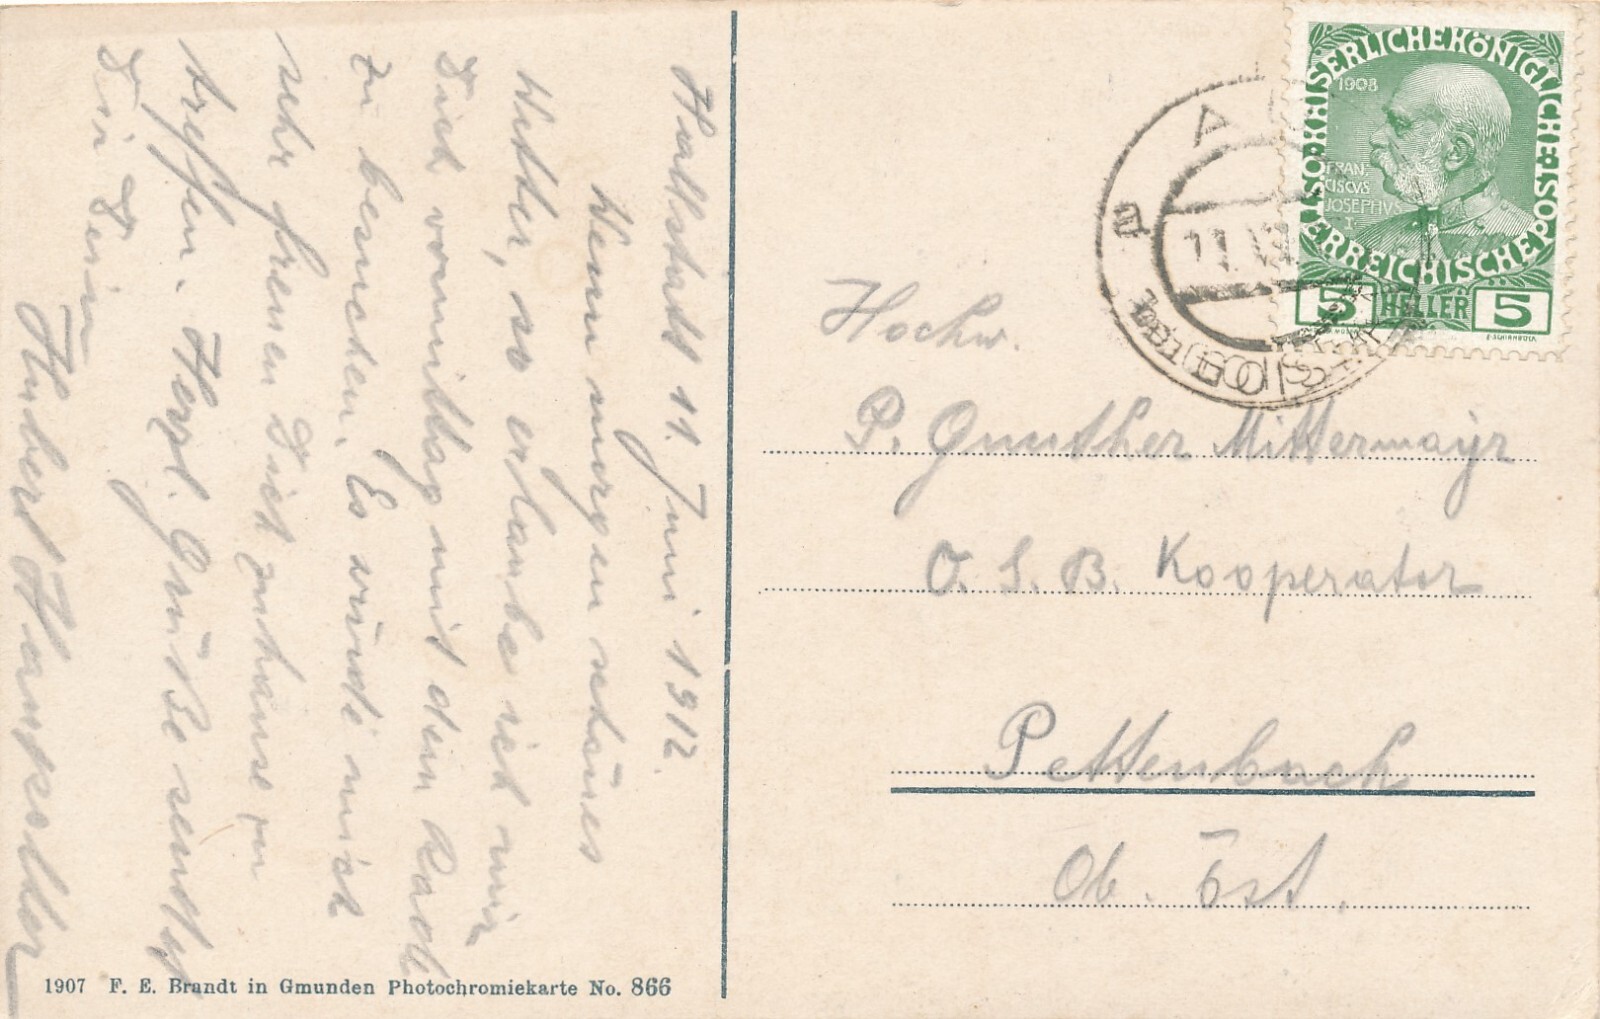 Hallstatt 11. Juni 1912.
Wenn morgen schönes
Wetter, so erlaube ich mir
Dich vormittag mit dem Rade
zu besuchen. Es würde mich
sehr freuen Dich zuhause zu
treffen. Herzl. Grüße sendet
Dir Dein
Hubert Hampsolder
Hochw.
P. Gunther Mittermayr
O. S. B. Kooperator
Pettenbach
Ob. Öst.
KAISERLICHE KÖNIGLICHE ÖSTERREICHISCHE POST
1908
FRAN-
CISCVS
JOSEPHVS
I.
5 HELLER 5
a
11. VI
1907 F. E. Brandt in Gmunden Photochromiekarte No. 866